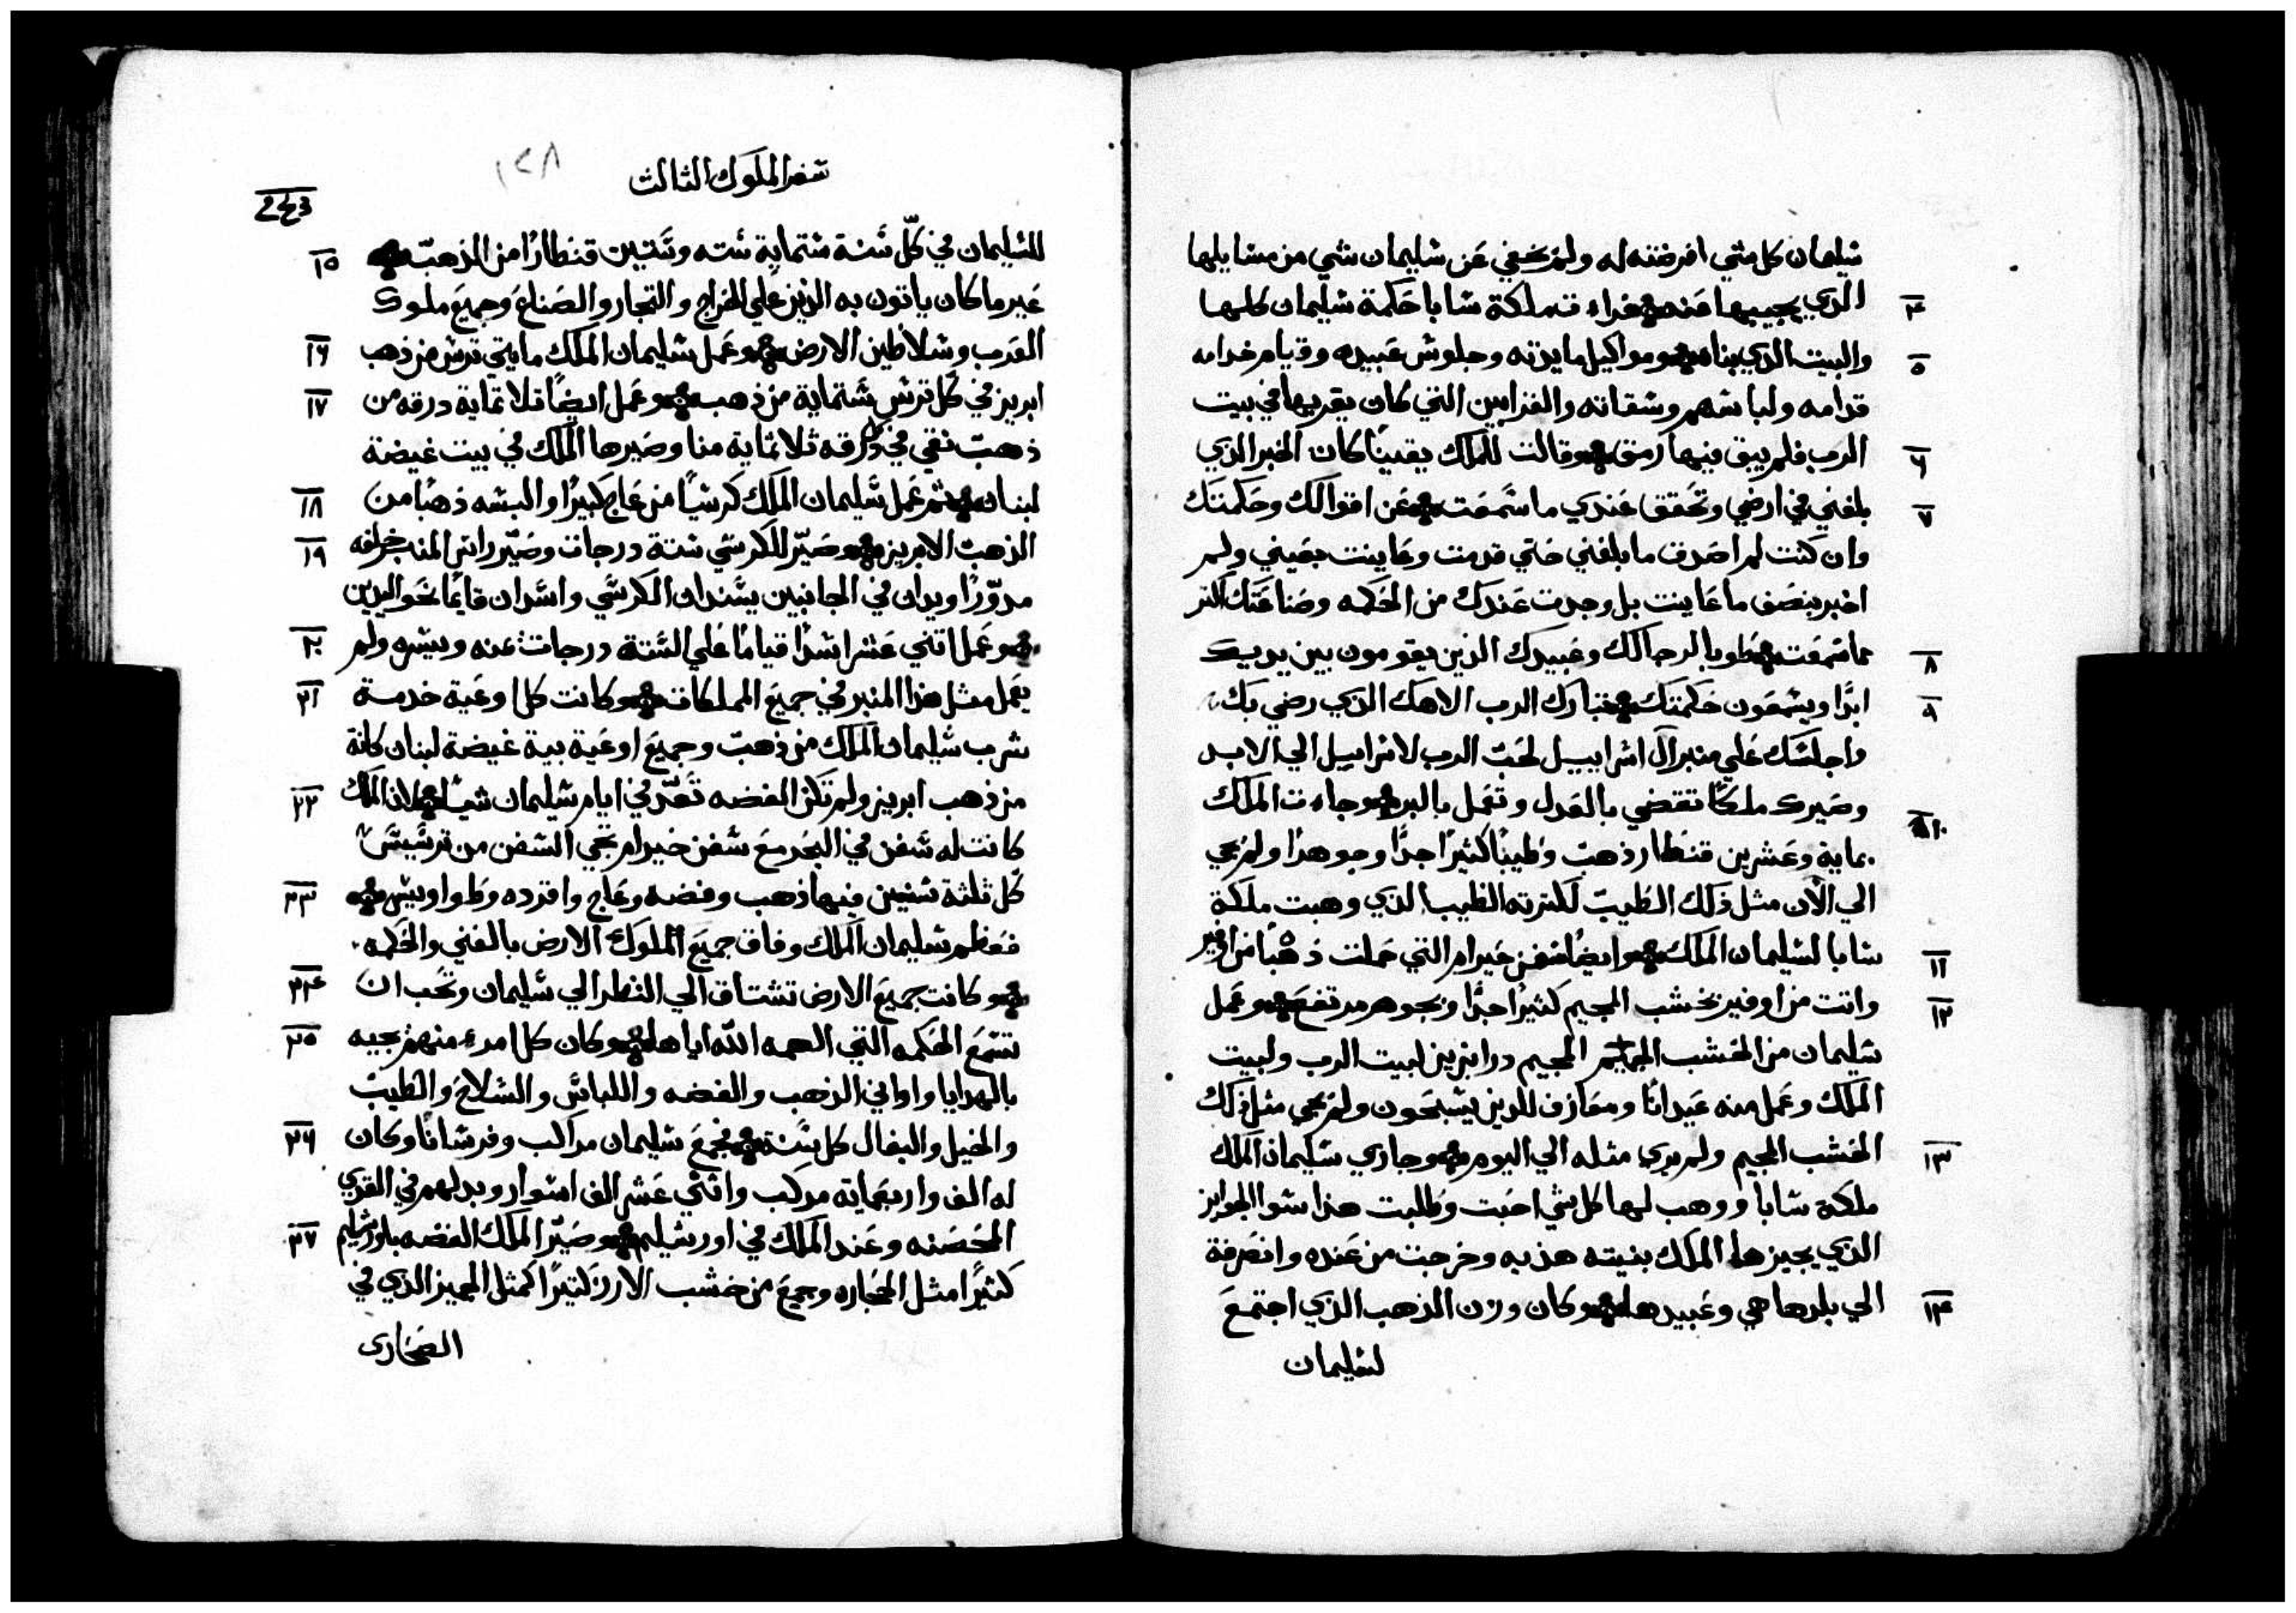 شليمان كل شي افرضته له ولم يخفي عن شليمان شي من مسايلها
٤ الذي يجيبها عنه فراءت ملكة شابا حكمة شليمان كلها
٥ والبيت الذي بناه ومواكيل مايدته وجلوش عبيده وقيام خدامه
قدامه ولباشهم وشقاته والقرابين التي كان يقربها في بيت
٦ الرب فلم يبق فيها رمق وقالت للملك يقينًا كان الخبر الذي
٧ بلغني في ارضي وتحقق عندي ما شمعت عن اقوالك وحكمتك
وان كنت لم اصدق ما بلغني حتي قدمت وعاينت بعيني ولم
اخبر بنصف ما عاينت بل وجدت عندك من الحكمه وصناعتك اكتر
٨ مما شمعت طوبا لرجالك وعبيدك الذين يقومون بين يديك
٩ ابدًا ويشمعون حكمتك تبارك الرب الاهك الذي رضي بك
واجلشك علي منبر ال اشراييل لحب الرب لاشراييل الي الابد
١٠ وصيرك ملكًا تقضي بالعدل وتعمل بالبر وجاءت الملك
بماية وعشرين قنطار ذهب وطيبًا كثيرًا جدًا وجوهرًا ولم يجي
الي الان مثل ذلك الطيب لكترته الطيب الذي وهبت ملكة
١١ شابا لشليمان الملك وايضًا شفن خيرام التي حملت ذهبًا من اوفير
١٢ واتت من اوفير بخشب المجيم كثيرًا جدًا وبجوهر مرتفع وعمل
شليمان من الخشب المجيم درابزين لبيت الرب ولبيت
الملك وعمل منه عيدانًا ومعازف للذين يشبحون ولم يجي مثل ذلك
١٣ الخشب المجيم ولم يري مثله الي اليوم وجازي شليمان الملك
ملكة شابا ووهب لها كل شي احبت وطلبت هذا شوا الجوايز
الذي يجيزها الملك بنيته هذيه وخرجت من عنده وانصرفة
١٤ الي بلدها هي وعبيدها وكان وزن الذهب الذي اجتمع
لشليمان
شفر الملوك الثالث
١٤٨
لشليمان في كل شنة شتماية شته وشتين قنطارًا من الذهب
١٥ غير ما كان ياتون به الذين علي الخراج والتجار والصناع وجميع ملوك
١٦ العرب وشلاطين الارض وعمل شليمان الملك مايتي ترش من ذهب
١٧ ابريز في كل ترش شتماية من ذهب وعمل ايضًا تلاتماية درقه من
ذهب نقي في درقه ثلاثماية منا وصيرها الملك في بيت غيضة
١٨ لبنان ثم عمل شليمان الملك كرشيًا من عاج كبيرًا والبشه ذهبًا من
١٩ الذهب الابريز وصير للكرشي شتة درجات وصير راش المنبر خلفه
مدورًا ويدان في الجانبين يشندان الكرشي واشدان قايمًا نحو اليدين
٢٠ وعمل اتني عشر اشدًا قيامًا علي الشتة درجات عنه ويشره ولم
٢١ يعمل مثل هذا المنبر في جميع المملكات وكانت كل اوعية خدمة
شرب شليمان الملك من ذهب وجميع اوعية بية غيضة لبنان كانة
٢٢ من ذهب ابريز ولم تكن الفضه تعد في ايام شليمان شيا لان الملك
كانت له شفن في البحر مع شفن خيرام تجي الشفن من ترشيش
٢٣ كل ثلثة شنين فيها ذهب وفضه وعاج واقرده وطواويش
فعظم شليمان الملك وفاق جميع الملوك الارض بالغني والحكمه
٢٤ وكانت جميع الارض تشتاق الي النظر الي شليمان وتحب ان
٢٥ تشمع الحكمه التي الهمه الله اياها وكان كل امرء منهم يجيه
بالهدايا واواني الذهب والفضه واللباش والشلاح والطيب
٢٦ والخيل والبغال كل شنة فجمع شليمان مراكب وفرشانًا وكان
له الف واربعمايه مركب واثني عشر الف اشوار وبدلهم في القري
٢٧ المحصنه وعند الملك في اورشليم وصير الملك الفضه باورشليم
كثيرًا مثل الحجاره وجمع من خشب الارز كتيرًا كمثل الجميز الذي في
الصحاري